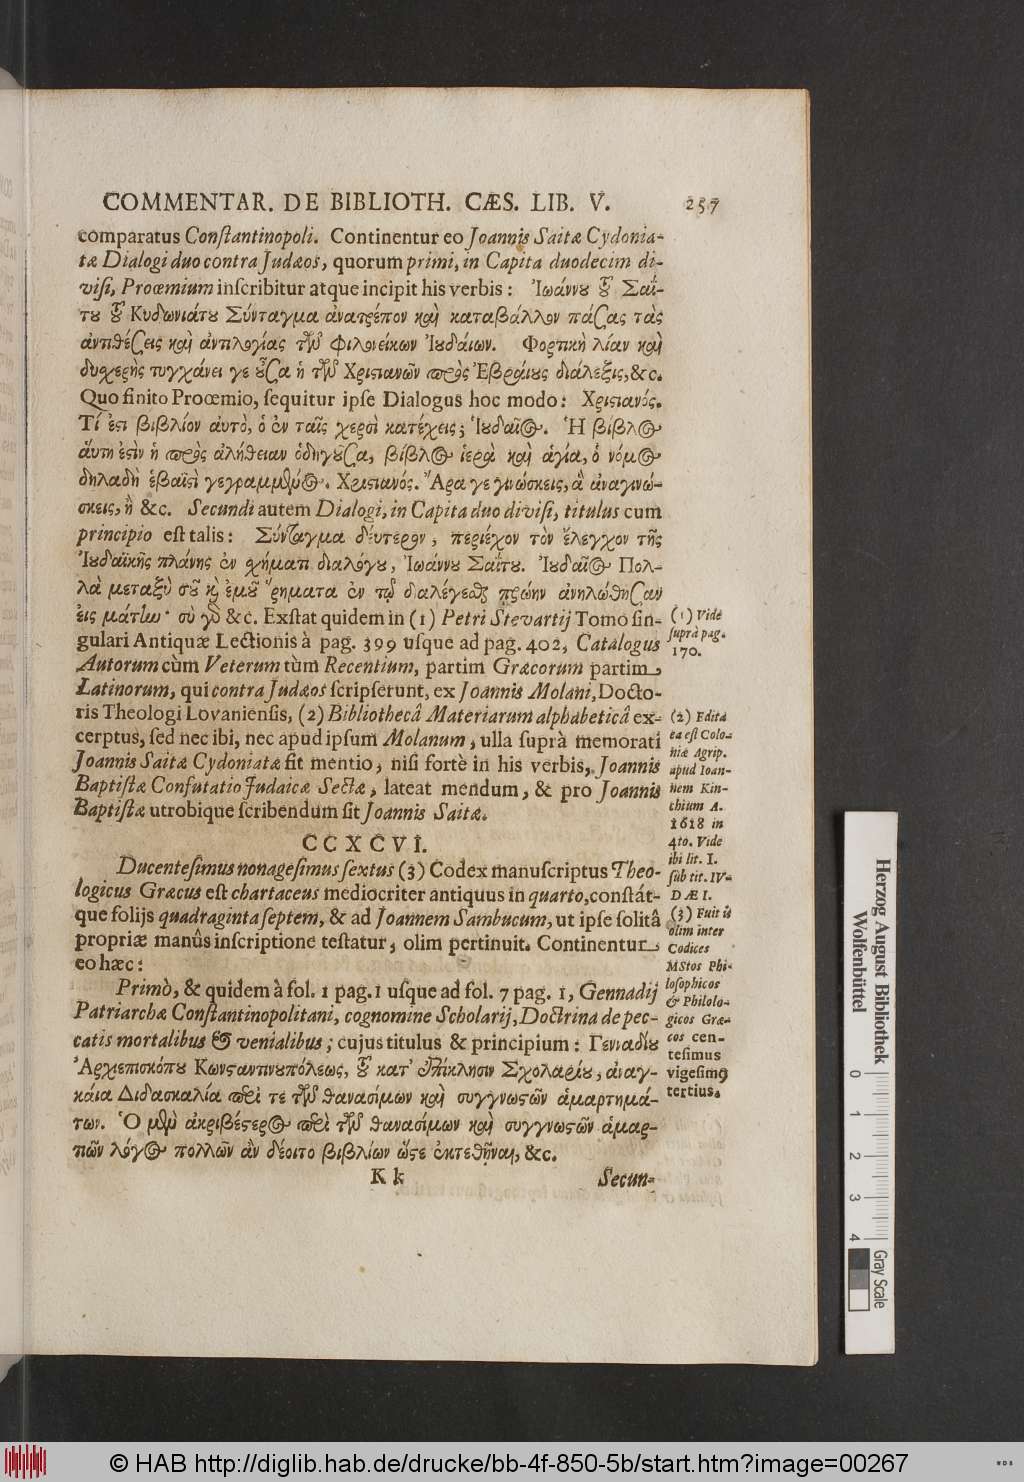 COMMENTAR. DE BIBLIOTH. CÆS. LIB. V. 257
comparatus Conſtantinopoli. Continentur eo Joannis Saitæ Cydonia-
tæ Dialogi duo contra Judæos, quorum primi, in Capita duodecim di-
viſi, Proœmium inſcribitur atque incipit his verbis: Ἰωάννου τοῦ Σαΐ-
του τοῦ Κυδωνιάτου Σύνταγμα ἀνατρέπον καὶ καταβάλλον πάσας τὰς
ἀντιθέσεις καὶ ἀντιλογίας τῶν φιλονείκων Ἰουδάιων. Φορτικὴ λίαν καὶ
δυχερὴς τυγχάνει γε οὖσα ἡ τῶν Χριστιανῶν πρὸς Ἑβράιους διάλεξις, &c.
Quo finito Proœmio, ſequitur ipſe Dialogus hoc modo: Χριστιανός.
Τί ἐστι βιβλίον αὐτὸ, ὁ ἐν ταῖς χερσὶ κατέχεις; Ἰουδαῖος. Ἡ βίβλος
ἅυτη ἐσὶν ἡ πρὸς ἀλήθειαν ὁδηγοῦσα, βίβλος ἱερὰ καὶ ἁγία, ὁ νόμος
δηλαδὴ ἑβαϊσὶ γεγραμμένος. Χριστιανός. Ἆρα γε γινώσκεις, ἃ ἀναγινώ-
σκεις, ἢ &c. Secundi autem Dialogi, in Capita duo diviſi, titulus cum
principio eſt talis: Σύνταγμα δέυτερον, περιέχον τὸν ἔλεγχον τῆς
Ἰουδαϊκῆς πλάνης ἐν σχήματι διαλόγου, Ἰωάννου Σαΐτου. Ἰουδαῖος Πολ-
λὰ μεταξὺ σοῦ καὶ ἐμοῦ ῥήματα ἐν τῷ διαλέγεσθαι πρώην ἀνηλώθησαν
ἐις μάτην· σὺ γὰρ &c. Exſtat quidem in (1) Petri Stevartij Tomo ſin-
gulari Antiquæ Lectionis à pag. 399 uſque ad pag. 402, Catalogus
Autorum cùm Veterum tùm Recentium, partim Græcorum partim
Latinorum, qui contra Judæos ſcripſerunt, ex Joannis Molani, Docto-
ris Theologi Lovanienſis, (2) Bibliothecâ Materiarum alphabeticâ ex-
cerptus, ſed nec ibi, nec apud ipſum Molanum, ulla ſuprà memorati
Joannis Saitæ Cydoniatæ fit mentio, niſi fortè in his verbis, Joannis
Baptiſtæ Confutatio Judaicæ Sectæ, lateat mendum, & pro Joannis
Baptiſtæ utrobique ſcribendum ſit Joannis Saitæ.
CCXCVI.
Ducenteſimus nonageſimus ſextus (3) Codex manuſcriptus Theo-
logicus Græcus eſt chartaceus mediocriter antiquus in quarto, conſtát-
que folijs quadraginta ſeptem, & ad Joannem Sambucum, ut ipſe ſolitâ
propriæ manûs inſcriptione teſtatur, olim pertinuit. Continentur
eo hæc:
Primò, & quidem à fol. 1 pag. 1 uſque ad fol. 7 pag. 1, Gennadij
Patriarchæ Conſtantinopolitani, cognomine Scholarij, Doctrina de pec-
catis mortalibus & venialibus; cujus titulus & principium: Γενιαδίου
Ἀρχιεπισκόπου Κωνσταντινουπόλεως, τοῦ κατ' ἐπίκλησιν Σχολαρίου, ἀναγ-
κάια Διδασκαλία περί τε τῶν θανασίμων καὶ συγγνωστῶν ἁμαρτημά-
των. Ὁ μὲν ἀκριβέστερος περὶ τῶν θανασίμων καὶ συγγνωστῶν ἁμαρ-
τιῶν λόγος πολλῶν ἂν δέοιτο βιβλίων ὥστε ἐκτεθῆναι, &c.
K k Secun-
(1) Vide
ſuprà pag.
170.
(2) Edita
ea eſt Colo-
niæ Agrip.
apud Ioan-
nem Kin-
chium A.
1618 in
4to. Vide
ibi lit. I.
ſub tit. IV-
DÆI.
(3) Fuit is
olim inter
Codices
MStos Phi-
loſophicos
& Philolo-
gicos Græ-
cos cen-
teſimus
vigeſimꝰ
tertius.
Herzog August Bibliothek
Wolfenbüttel
0 1 2 3 4
Gray Scale
© HAB http://diglib.hab.de/drucke/bb-4f-850-5b/start.htm?image=00267